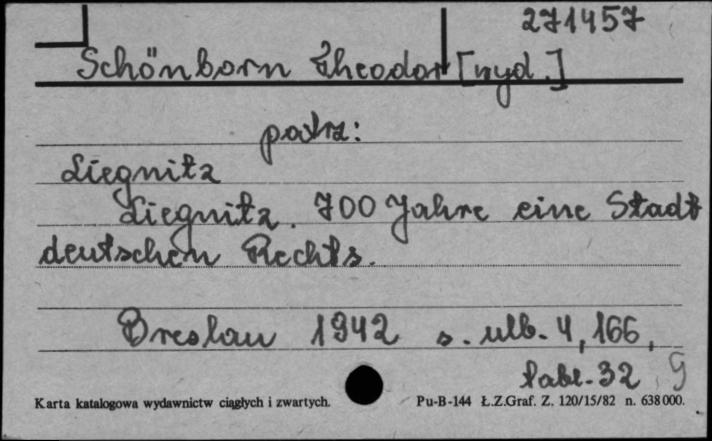 271457
Schönborn Theodor [wyd.]
patrz:
Liegnitz
Liegnitz. 700 Jahre eine Stadt
deutschen Rechts.
Breslau 1942 s. nlb. 4, 166,
tabl. 32 9
Karta katalogowa wydawnictw ciągłych i zwartych.
Pu-B-144 Ł.Z.Graf. Z. 120/15/82 n. 638000.